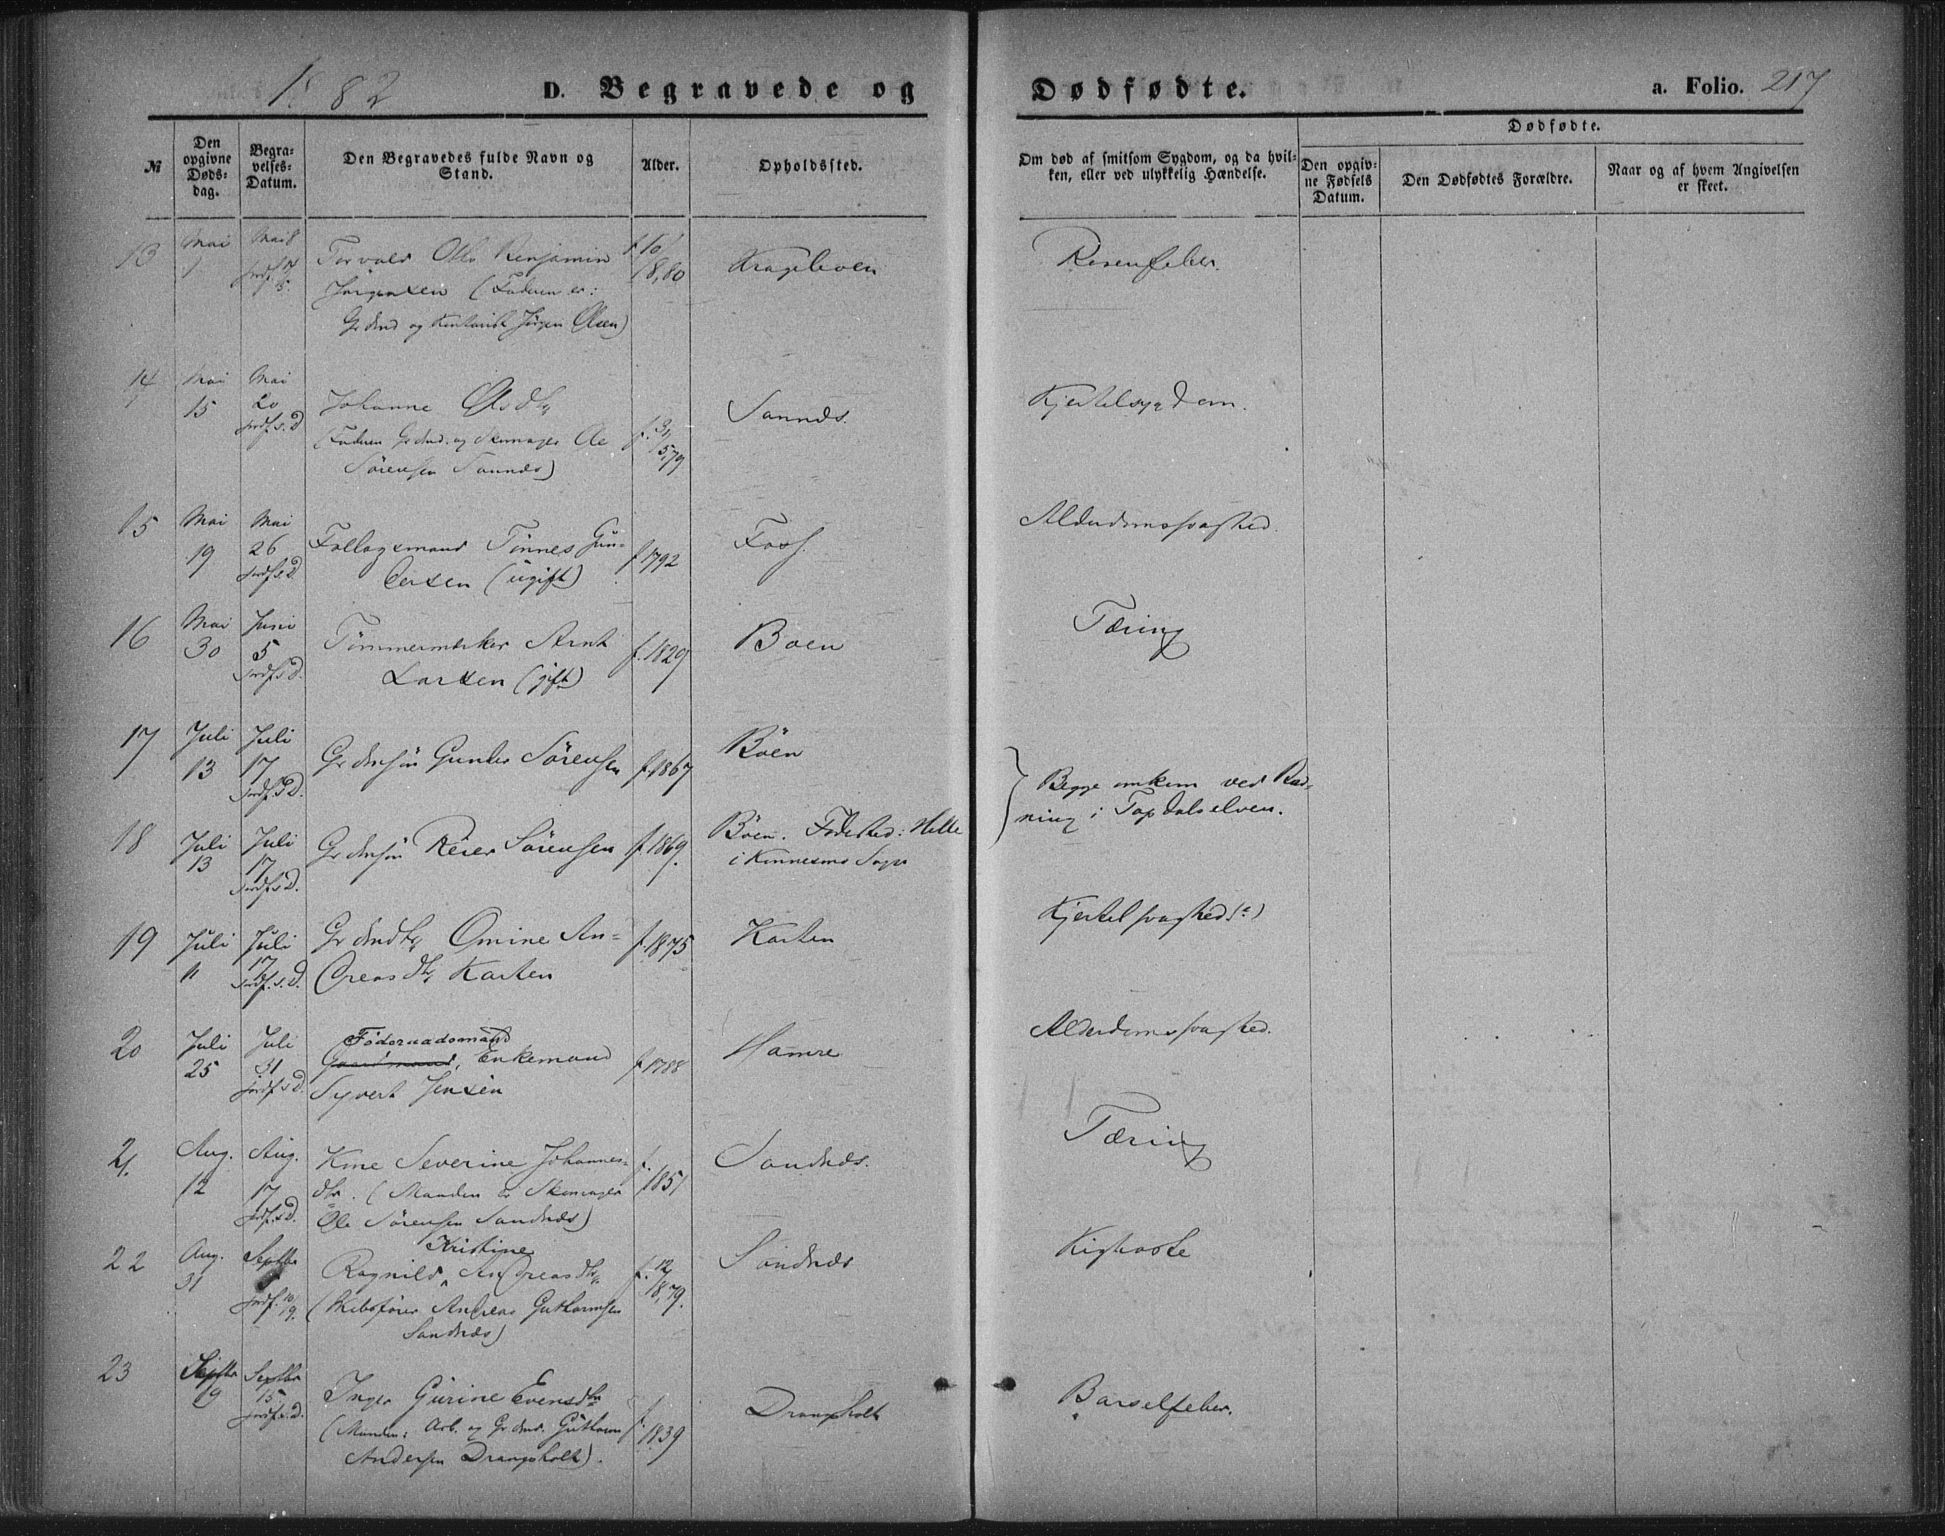 1882
D. Begravede og
Dødfødte.
a. Folio. 217
№
Den opgivne Døds-dag.
Begra-velses-Datum.
Den Begravedes fulde Navn og Stand.
Alder.
Opholdssted.
Om død af smitsom Sygdom, og da hvil-
ken, eller ved ulykkelig Hændelse.
Dødfødte.
Den opgiv-ne Fødsels Datum.
Den Dødfødtes Forældre.
Naar og af hvem Angivelsen
er skeet.
13 Mai Mai 8 Torvald Otto Benjamin
Jørgensen (Faderen er:
Grdmd og Jørgen Olsen)
18,80
Rosenfeber.
14 Mai 15 Mai 20 Jordf. s. D
Johanne Olsdtr
(Faderen Grdmd. og Ole
Sørensen Sannæs)
5,79
Sannæs.
Kjertelsygdom.
15 Mai 19 Mai 26 Jordf. s. D.
Follogsmand Tønnes Gun-
dersen (ugift)
f. 1792
Foss.
Alderdomssvaghed.
16 Mai 30 Juni 5 Jordf. s. D.
Tømmermerker Arnt
Larsen (gift)
f. 1829
Boen
Tæring
17 Juli 13 Juli 17 Jordf. s. D.
Grdmsøn Gunder Sørensen f. 1867
Böen
Begge omkom ved Bad-
ning i Topdalselven.
18 Juli 13 Juli 17 Jordf. s. D.
Grdmsøn Reier Sørensen f. 1869.
Böen. Fødested: Helle
i Sogn
19 Juli 11 Juli 17 Jordf. s. D.
Grdmdtr Omine An-
dreasdtr Karten
f. 1875
Karten
Kjertelsvaghed (?)
20 Juli 25 Juli 31 Jordf. s. D.
Föderaadsmand
Gaardmand, Enkemand
Syvert Jensen
f. 1788
Hamre
Alderdomssvaghed.
21. Aug. 12 Aug. 17 Jordf. s. D.
Severine Johannes-
dtr. (Manden er
Ole Sørensen Sandnæs)
f. 1851
Sandnæs.
Tæring
22 Aug. 31 Septbr Jordf. 10/9.
Kristine
Ragnild Andreasdtr.
(Skibsfører Andreas Guthormsen
Sandnæs)
f. 12/8,79.
Sandnæs
Kighoste
23 Septbr 9 Septbr 15 Jordf. s. D.
Inger Gurine Evensdtr
(Manden: Arb. og Grdmd. Guthorm
Andersen Drangsholt).
f. 1839
Drangsholt
Barselfeber.